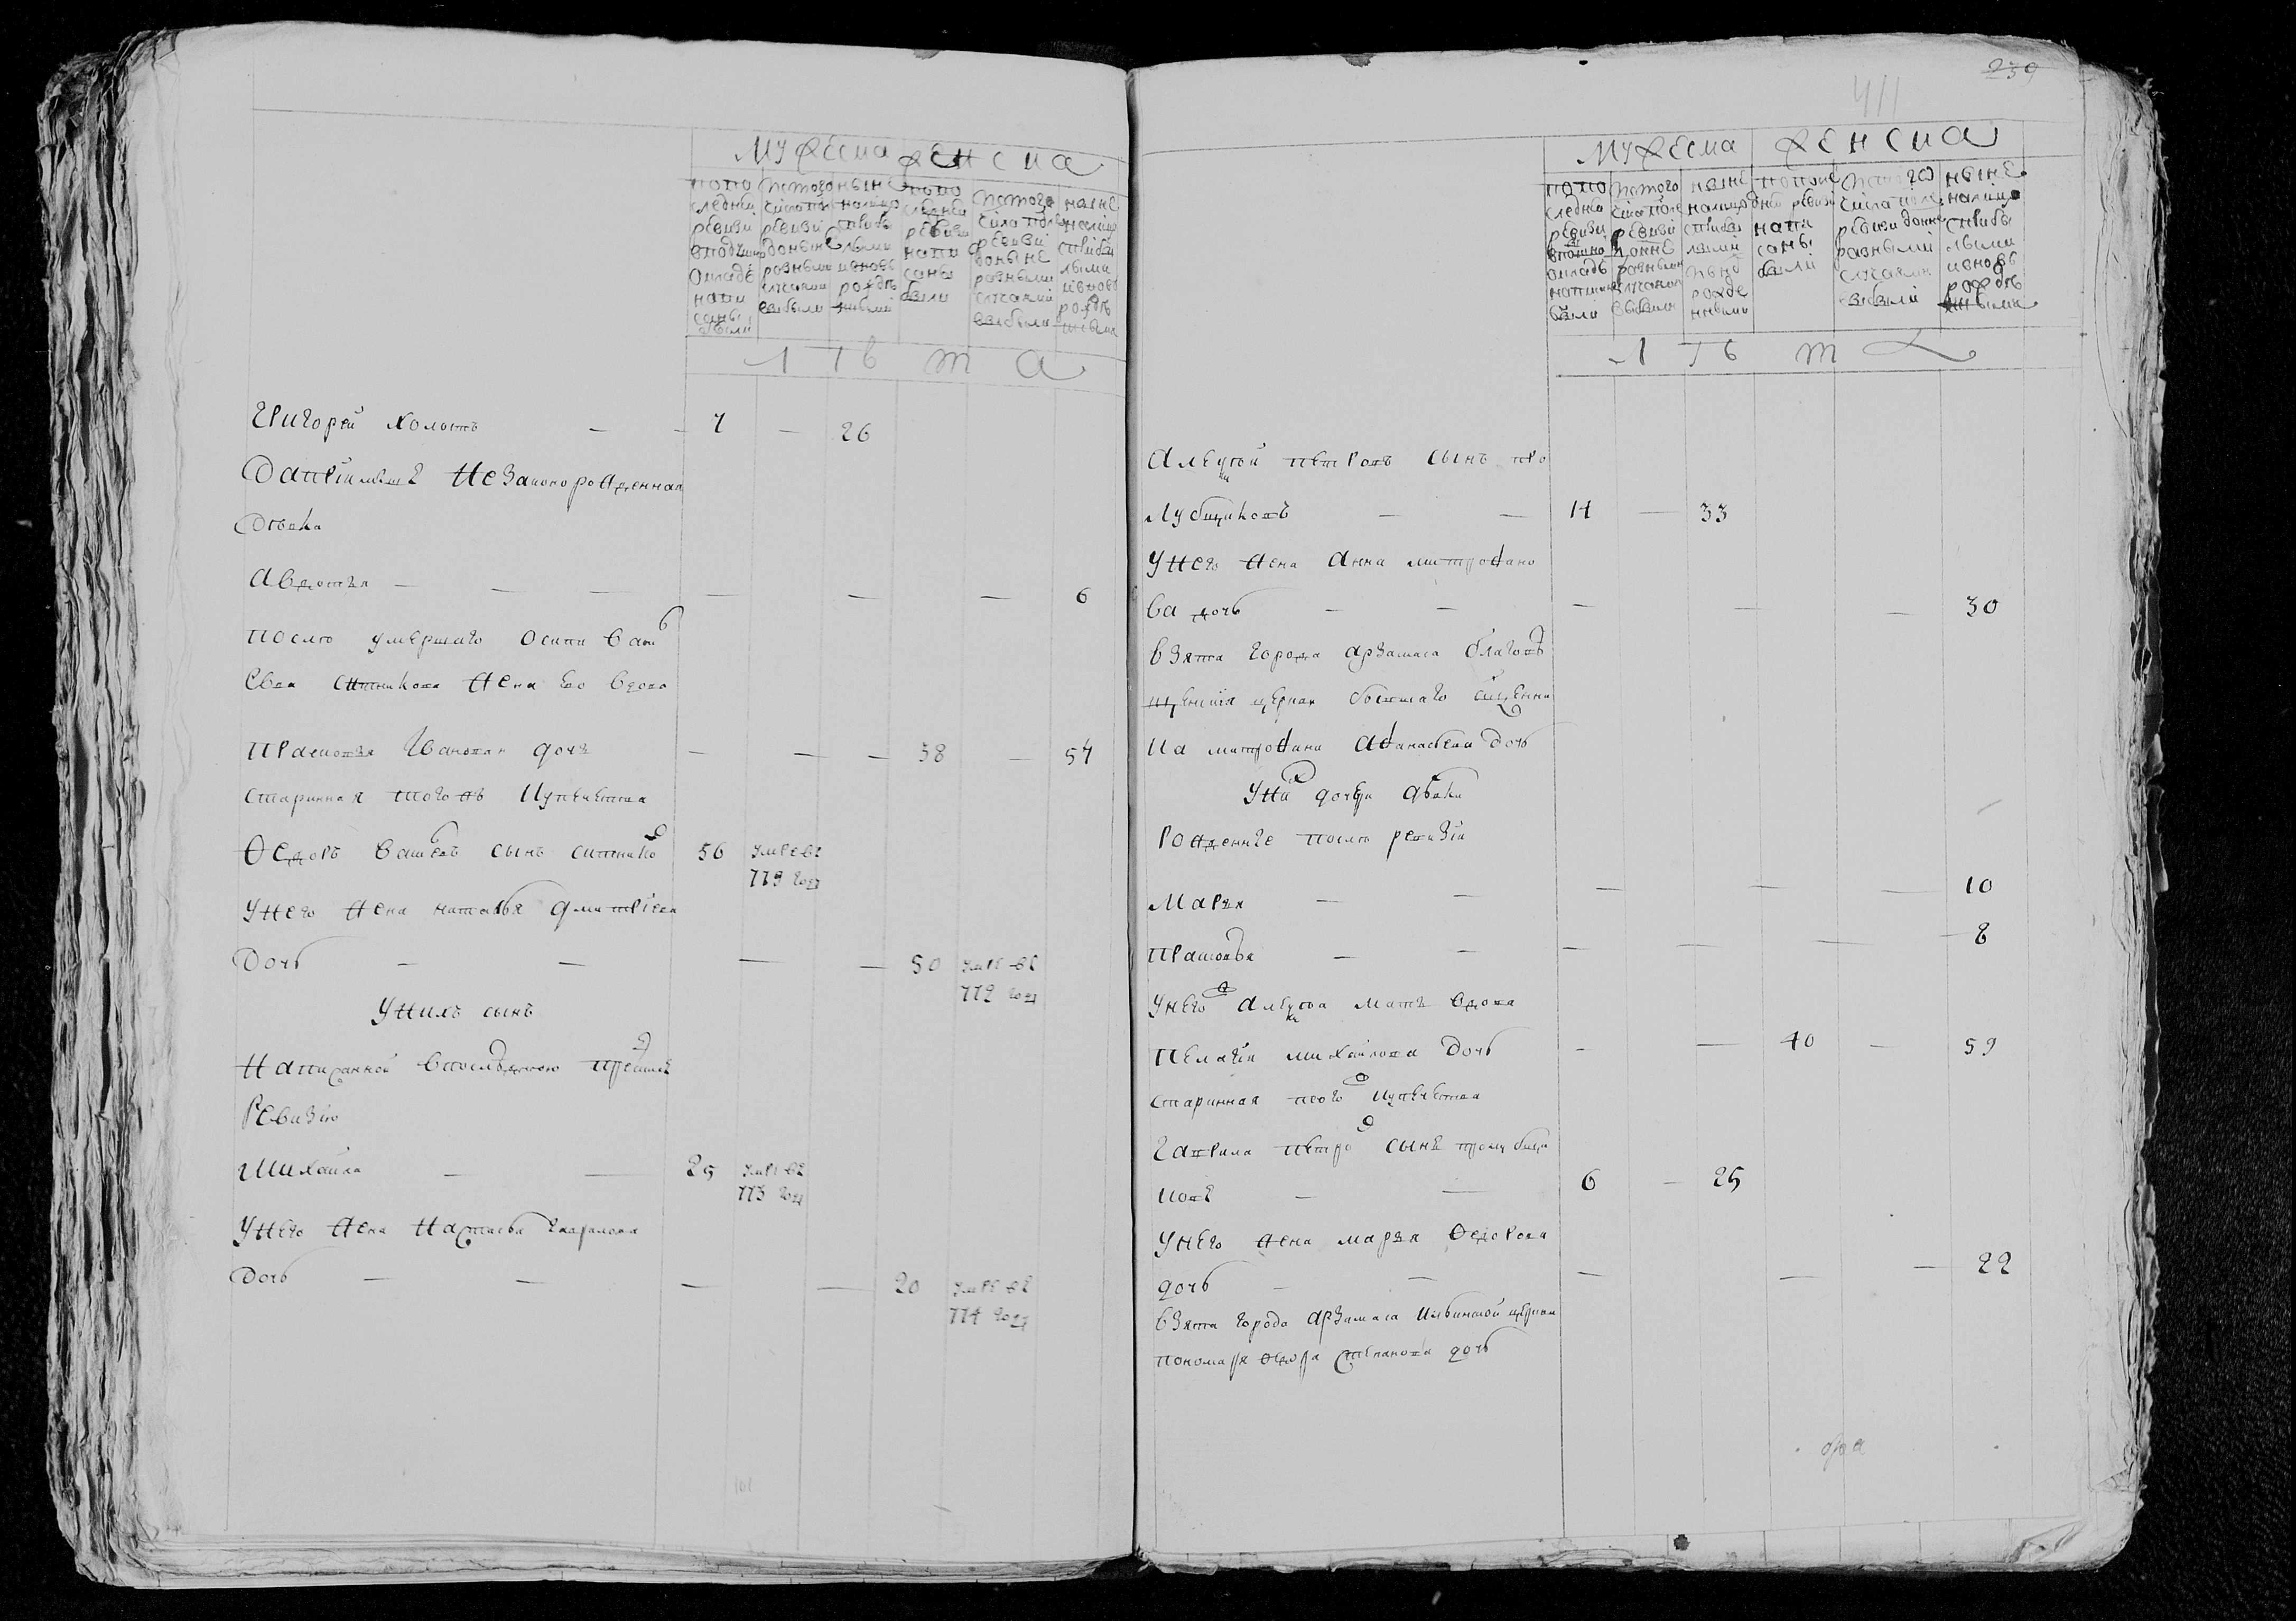 мужеска женска
попо
следней
ревизи
вподушно
окладе
напи
саны
были
изтого
числа после
ревизи
доныне
разными
случаями
выбыли
ныне
налицо
сприбы
лыми
ивновь
рожде
ными
попо
следней
ревизи
напи
саны
были
изтого
числа после
ревизи
доныне
разными
случаями
выбыли
ныне
налицо
сприбы
лыми
ивновь
рожде
ными
лѣта
Григорей холостъ — — 7 — 26
незаконорожденная
дѣвка
Авдотья — — — — — — 6
после умершаго осипа васиь
ева ситникова жена ево вдова
прасковья Иванова дочь — — — 38 — 57
старинная того жъ купечества
Ѳедоръ васильевъ сынъ ситнико 56 умре в
779 году
у него жена наталья дмитріева
дочь — — — — 50 умре в
772 году
у нихъ сынъ
написанной впоследнюю прешед
ревизию
михайла — — 25 умре в
773 году
у него жена настасья гаврилова
дочь — — — — 20 умре в
774 году
239
411
мужеска женска
попо
следней
ревизи
окладе
написаны
были
изтого
числа после
ревизи
доныне
разными
случаями
выбыли
ныне
налицо
сприбы
лыми
рожде
нными
попосле
дней ревизи
напи
саны
были
изтого
числа после
ревизи доныне
разными
случаями
выбыли
ныне
налицо
сприбы
лыми
ивновь
рожде
ными
лѣта
Алексей петровъ сынъ про
лубщиковъ — — 14 — 33
у него жена Анна митрофано
ва дочь — — — — — 30
взята города арзамаса благов
щения церкви бывшаго священни
ка митрофана Афанасьева дочь
у них дочери девки
рожденные после ревизіи
Марья — — — — — 10
прасковья — — — — — — 8
у него алексея мать вдова
пелагея михайлова дочь — — 40 — 59
старинная того купечества
Гаврила петро сынъ пролубщи
ковъ — — 6 — 25
у него жена марья Ѳедорова
дочь — — — — — 22
взята города арзамаса Ильинской церкви
пономаря Ѳедора степанова дочь